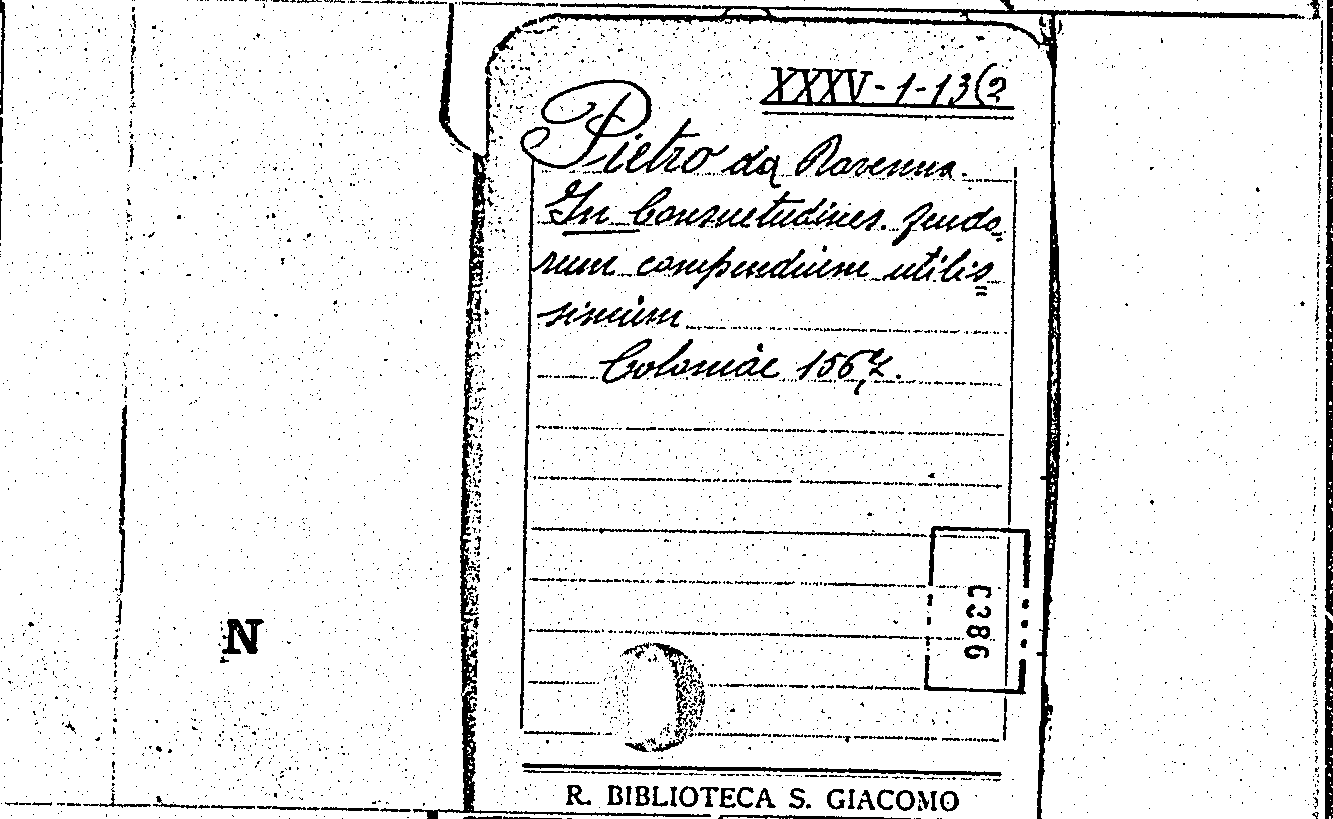 XXXV-1-13(2
Pietro da Ravenna.
In Consuetudines feudo-
rum compendium utilis=
simum
Coloniae 1567.
C386
N
R. BIBLIOTECA S. GIACOMO